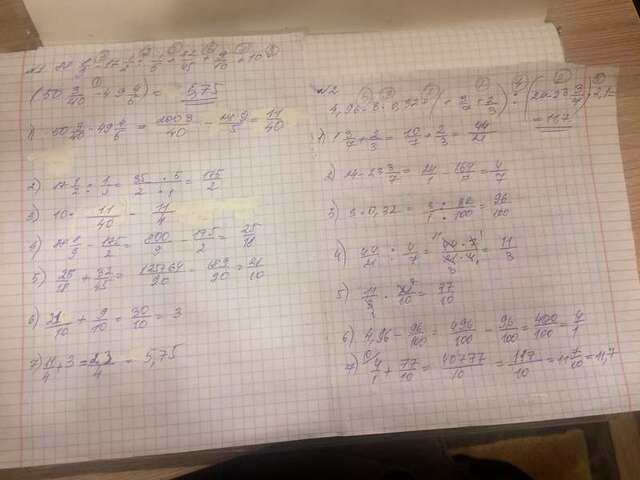 (50 3/40 - 49 4/5) = 5,75
1) 50 3/40 - 49 4/5 = 2003/40 - 249/5 = 11/40
2) 17 1/2 : 1/5 = 35/2 · 5/1 = 175/2
3) 10 · 11/40 = 11/4
5) 25/18 + 32/45 = 125+64/90 = 189/90 = 21/10
6) 21/10 + 9/10 = 30/10 = 3
7) 11/4 + 3 = 23/4 = 5,75
№2
4,96 - 3 · 0,32
= 11,7
1) 1 3/7 + 2/3 = 10/7 + 2/3 = 44/21
2) 24 - 23 3/7 = 24/1 - 164/7 = 4/7
3) 3 · 0,32 = 3/1 · 32/100 = 96/100
4) 44/21 : 4/7 = 44 · 7/21 · 4 = 11/3
5) 11/3 · 21/10 = 77/10
6) 4,96 - 96/100 = 496/100 - 96/100 = 400/100 = 4/1
7) 4/1 + 77/10 = 40+77/10 = 117/10 = 11 7/10 = 11,7